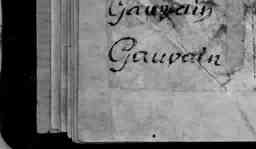 Gauvain
Gauvain